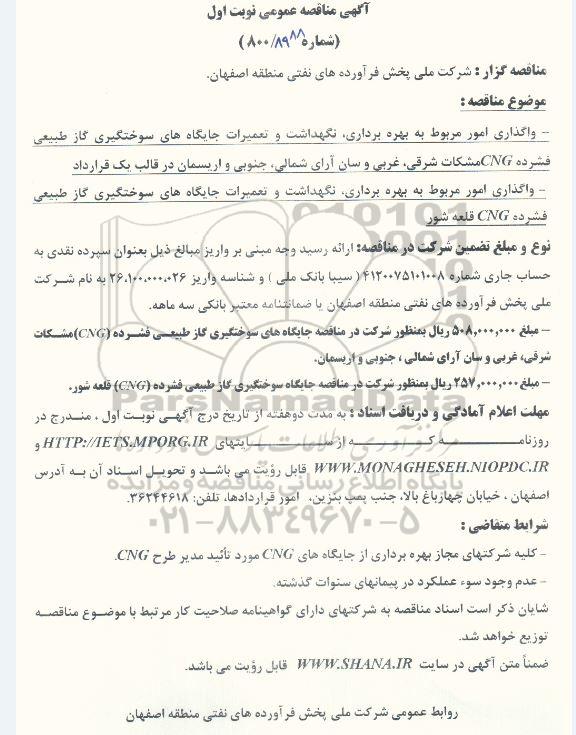 آگهی مناقصه عمومی نوبت اول
(شماره ۸۰۰/۸۹۸۸)
مناقصه گزار : شرکت ملی پخش فرآورده های نفتی منطقه اصفهان.
موضوع مناقصه :
– واگذاری امور مربوط به بهره برداری، نگهداشت و تعمیرات جایگاه های سوختگیری گاز طبیعی
فشرده CNG مشکات شرقی، غربی و سان آرای شمالی، جنوبی و اریسمان در قالب یک قرارداد
– واگذاری امور مربوط به بهره برداری، نگهداشت و تعمیرات جایگاه های سوختگیری گاز طبیعی
فشرده CNG قلعه شور
نوع و مبلغ تضمین شرکت در مناقصه: ارائه رسید وجه مبنی بر واریز مبالغ ذیل بعنوان سپرده نقدی به
حساب جاری شماره ۴۱۲۰۰۷۵۱۰۱۰۰۸ ( سیبا بانک ملی ) و شناسه واریز ۲۶،۱۰۰،۰۰۰،۰۲۶ به نام شرکت
ملی پخش فرآورده های نفتی منطقه اصفهان یا ضمانتنامه معتبر بانکی سه ماهه.
– مبلغ ۵۰۸,۰۰۰,۰۰۰ ریال بمنظور شرکت در مناقصه جایگاه های سوختگیری گاز طبیعی فشرده (CNG) مشکات
شرقی، غربی و سان آرای شمالی ، جنوبی و اریسمان.
– مبلغ ۲۵۷,۰۰۰,۰۰۰ ریال بمنظور شرکت در مناقصه جایگاه سوختگیری گاز طبیعی فشرده (CNG) قلعه شور.
ParsNamadData
مهلت اعلام آمادگی و دریافت اسناد : به مدت دوهفته از تاریخ درج آگهی نوبت اول ، مندرج در
روزنامه که از سایتهای HTTP://IETS.MPORG.IR و
WWW.MONAGHESEH.NIOPDC.IR قابل رؤیت می باشد و تحویل اسناد آن به آدرس
پایگاه اطلاع رسانی مناقصه و مزایده
اصفهان ، خیابان چهارباغ بالا، جنب پمپ بنزین، امور قراردادها، تلفن: ۳۶۲۴۴۶۱۸.
۰۲۱-۸۸۳۴۹۶۷۰-۵
شرایط متقاضی :
– کلیه شرکتهای مجاز بهره برداری از جایگاه های CNG مورد تأئید مدیر طرح CNG.
– عدم وجود سوء عملکرد در پیمانهای سنوات گذشته.
شایان ذکر است اسناد مناقصه به شرکتهای دارای گواهینامه صلاحیت کار مرتبط با موضوع مناقصه
توزیع خواهد شد.
ضمناً متن آگهی در سایت WWW.SHANA.IR قابل رؤیت می باشد.
روابط عمومی شرکت ملی پخش فرآورده های نفتی منطقه اصفهان